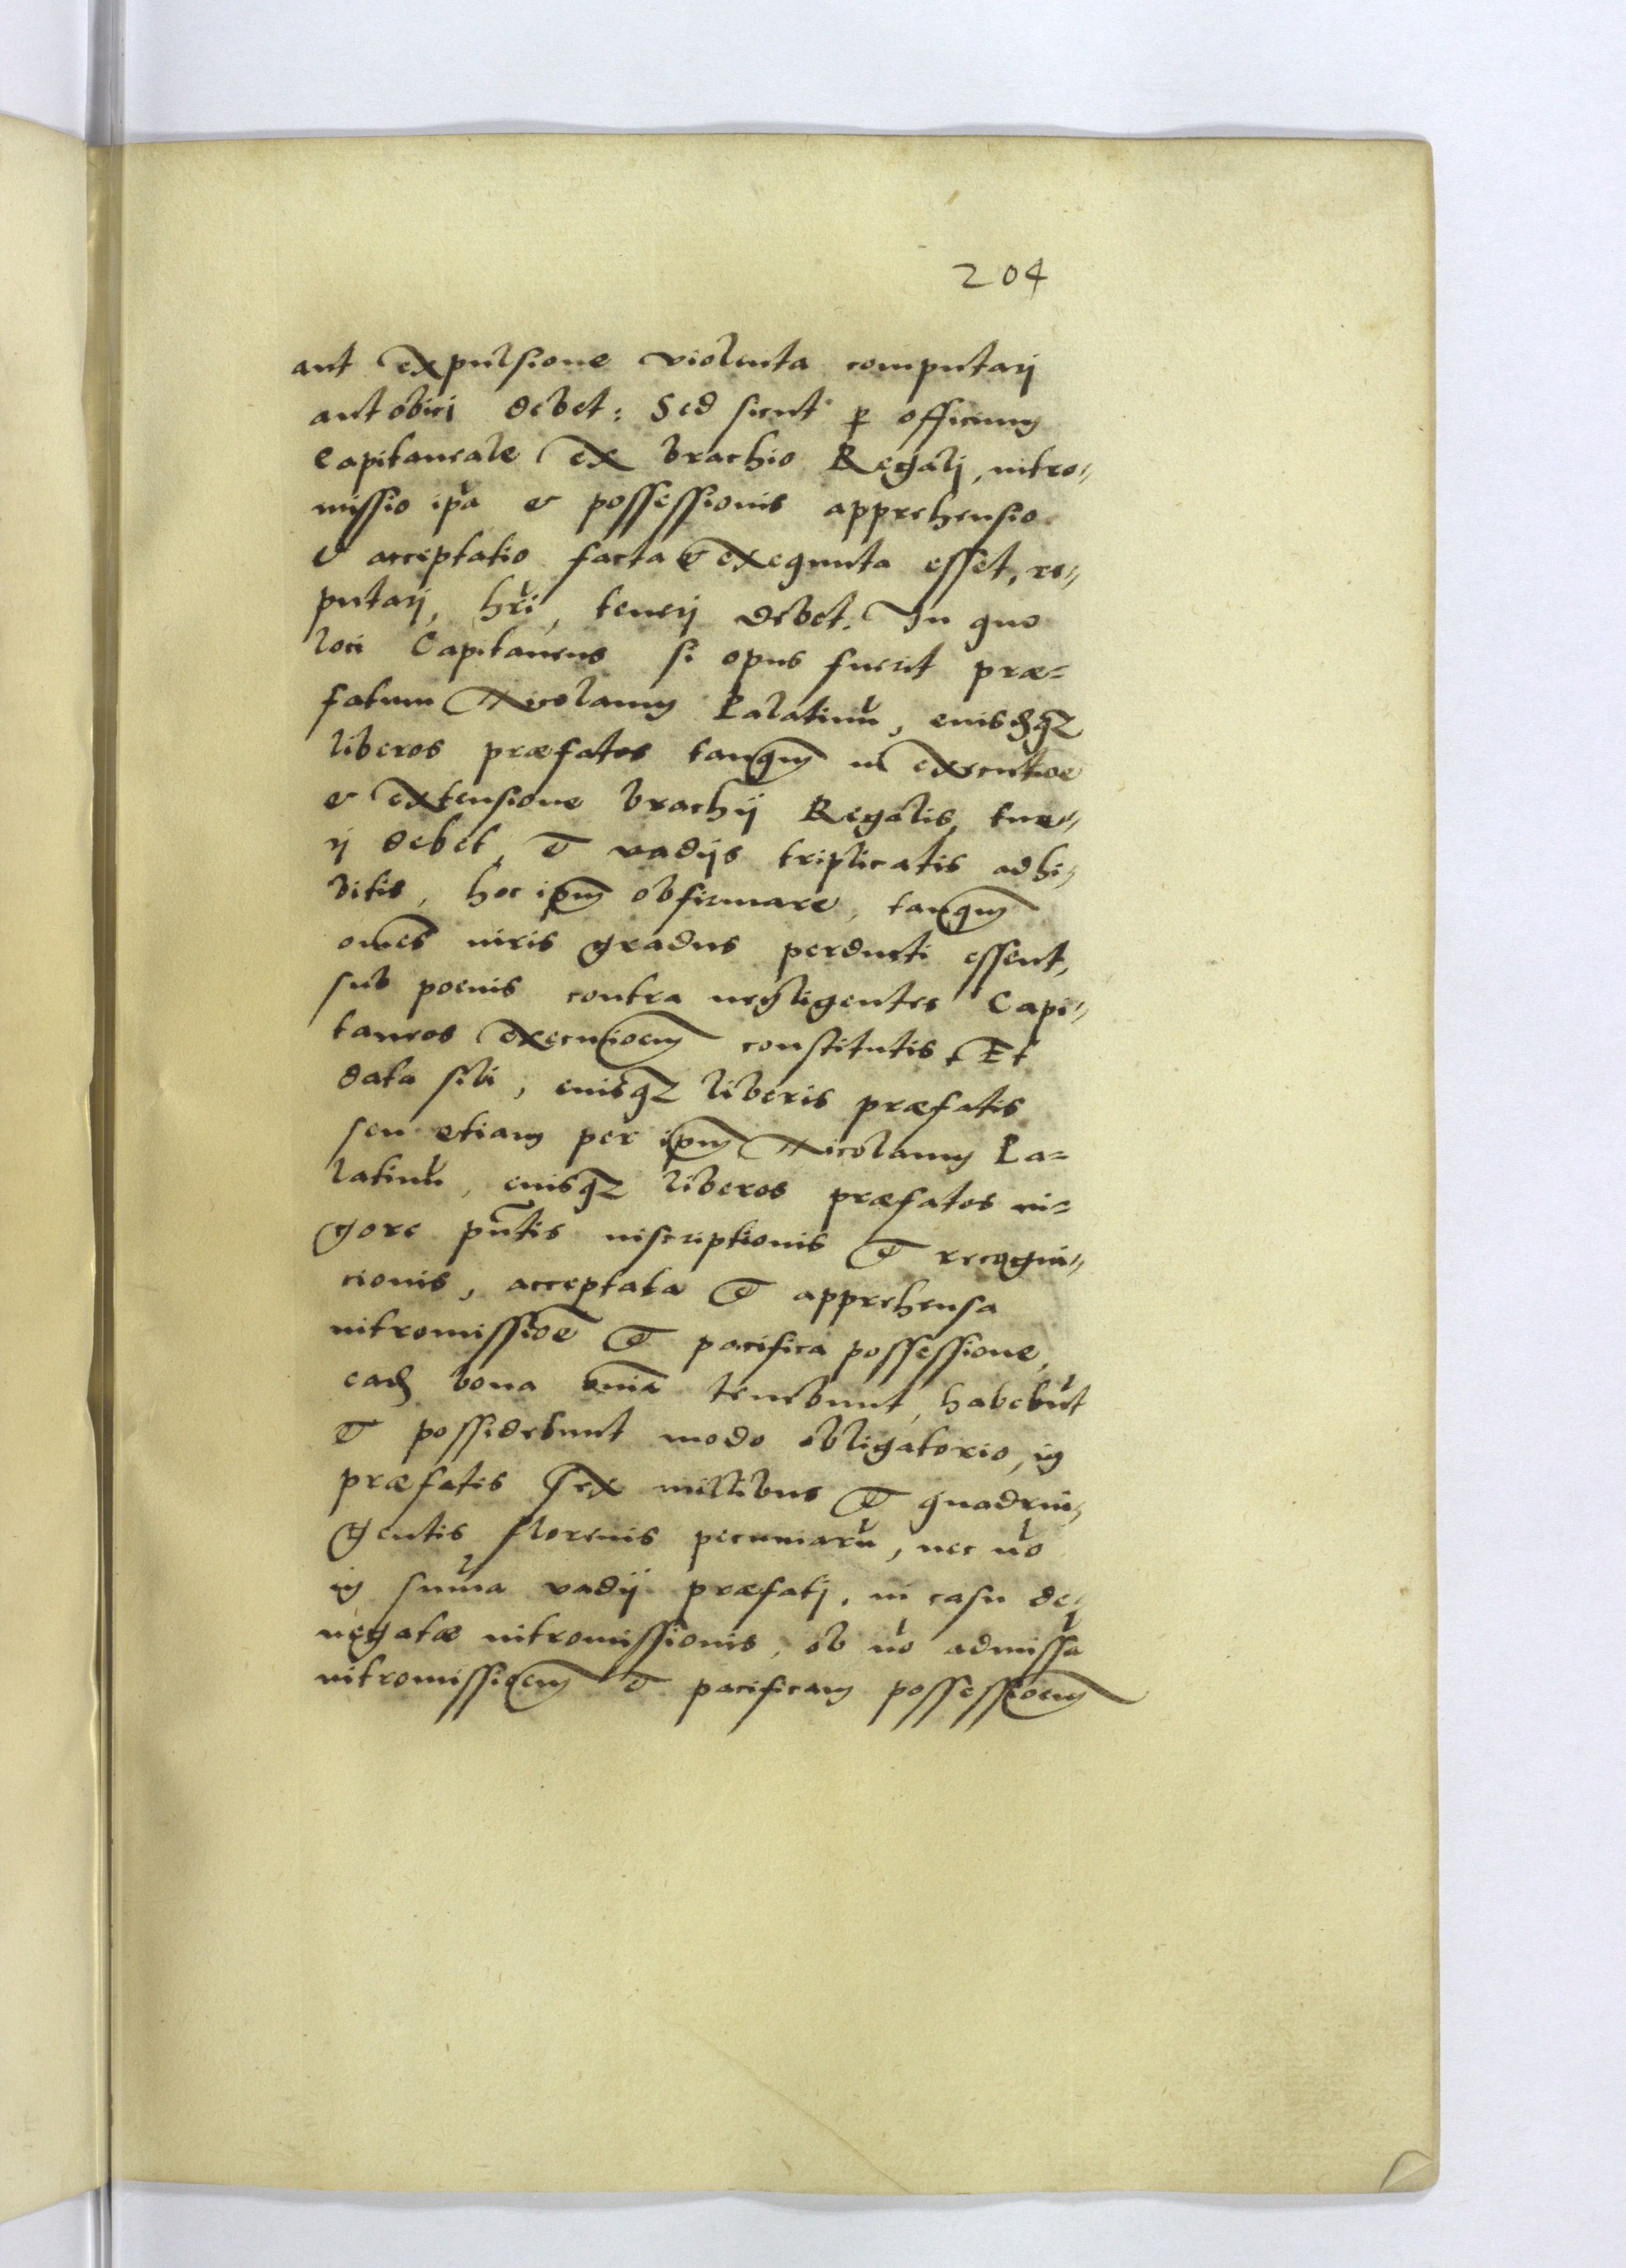 204
aut expulsione violenta computarj
aut obijci debet: Sed sicut p officium
Capitaneale ex brachio Regalj, intro„
missio ipa et possessionis apprehensio
et acceptatio facta et exequuta esset, re„
putarj, hri, tenerj debet. In quo
loci Capitaneus si opus fuerit præ=
fatum Nicolaum Palatinu, eiusdqz
liberos præfatos tanqm in executioe
et extensione brachij Regalis, tue„
rj debet, et vadijs triplicatis adhi„
bitis, hoc ipm obfirmare, tanqm
omes iuris gradus perducti essent,
sub poenis contra negligentes Capi„
taneos executioem constitutis, Et
data sibi, eiusqz liberis præfatis
seu etiam per ipm Nicolaum Pa=
latinu, eiusqz liberos præfatos vi=
gore pntis inscriptionis et recogni„
cionis, acceptata et apprehensa
intromissioe et pacifica possessione,
ead bona omia tenebunt, habebut
et possidebunt modo obligatorio, in
præfatis sex millibus et quadrin„
gentis florenis pecuniaru, nec no
in suma vadij præfatj, in casu de„
negatæ intromissionis, ob no admissa
intromissioem et pacificam possessioem